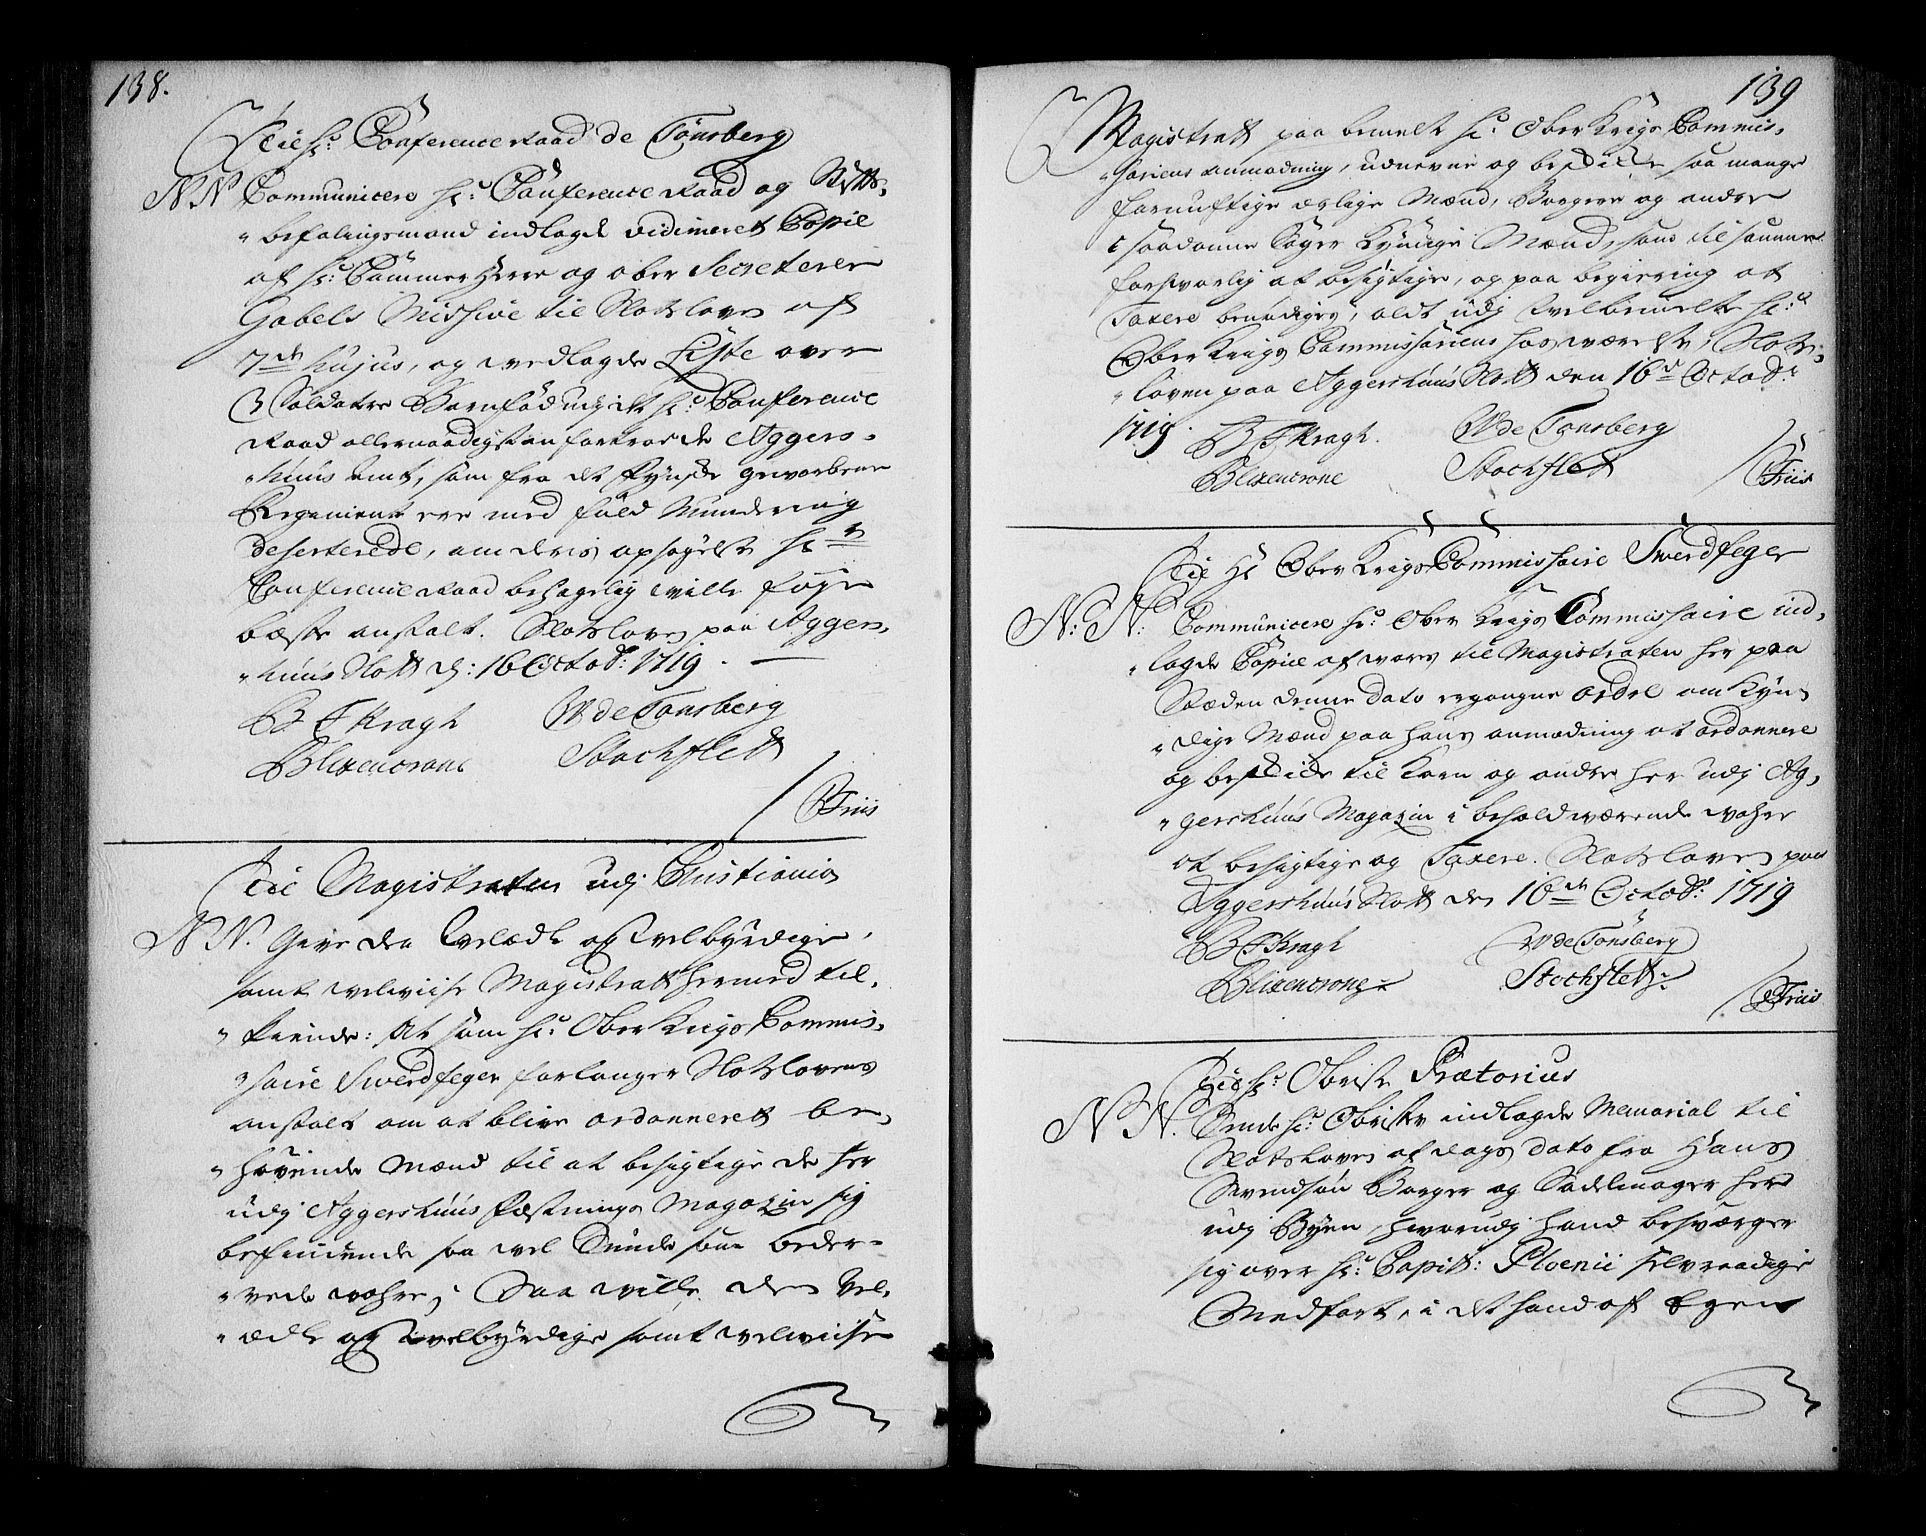 138.
Til hr: Conference Raad de Tønsberg
N.N Communicere hr: Conference Raad og Stifts-
befalingsmand indlagde vidimeret Copie
af hr: Cammer Herre og ober Secreterer
Gabels Missive til Slotsloven af
7de hujus, og vedlagde Liste over
3 Soldater Barnfød udj det hr: Conference
Raad allernaadigst anfortroede Aggers-
huus Amt, som fra det Fynske gevorbene
Regimente ere med fuld Mundering
deserterede, om deris opsøgelse hr
Conference Raad behagelig wille føye
bæste anstalt. Slotsloven paa Aggers-
huus Slott d: 16 Octobr: 1719.
B F Kragh W de Tonsberg
Blixencrone Stochflett
/ Friis
Til Magistraten udj Christiania
N N. Give den Velædle og Velbyrdige,
samt velviise Magistratt hermed til-
kiende: At som hr: Ober Krigs Commis-
saire Swerdfeger forlanger Slotslovens
anstalt om at blive ordonneret be-
hövende Mænd til at besigtige de her
udj Aggershuus Fæstnings Magazin sig
befindende saa vel Sunde som beder-
vede wahre; Saa wille den Vel-
ædle og Velbyrdige samt velviise
139
Magistratt paa bemelte hr: Ober Krigs Commis-
sariens anmodning, udnevne og beskikke saa mange
fornuftige ærlige Mænd, Borgere og andre
i saadanne Sager kyndige Mænd, som til sammen
forsvarlig at besigtige, og paa begiering at
Taxere benødiges, aldt udj Velbemelte hr:
Ober Krigs Commissariens hosværelse, Slots-
loven paa Aggershuus Slott den 16de Octobr:
1719. B F Kragh. W de Tonsberg
Blixencrone Stochflett / Friis
Til Hr Ober Krigs Commissaire Swerdfeger
N: N: Communicere hr: Ober Krigs Commissaire ind-
lagde Copie af vores til Magistraten her paa
Stæden denne dato ergangne ordre om kyn-
dige Mænd paa hans anmodning at ordonnere
og beskicke til Korn og andre her udj Ag-
gershuus Magazin i behold værende wahre
at besigtige og Taxere. Slotsloven paa
Aggershuus Slott den 16de Octobr: 1719
B F Kragh W de Tönsberg
Blixencrone Stochflett
/ Friis
Til hr: Obriste Prætorius
N N. Sende hr: Obrister indlagde Memorial til
Slotsloven af dags dato fra Hans
Svendsøn Borger og Sadelmager her
udj Byen, hvorudj hand besværger
sig over hr: Capit: Ploenii selvraadige
Medfart, i det hand af Egen